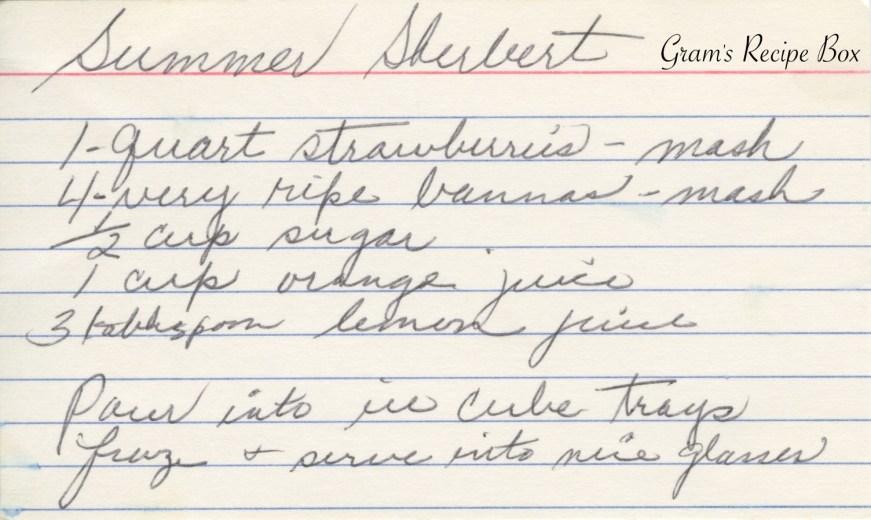 Summer Sherbert
Gram's Recipe Box
1-quart strawburries - mash
4-very ripe bannas - mash
1/2 cup sugar
1 cup orange juice
3 tablespoon lemon juice
Pour into ice cube trays
freeze + serve into nice glasses